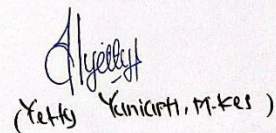 (Yetty Yuniarti, M.Kes)